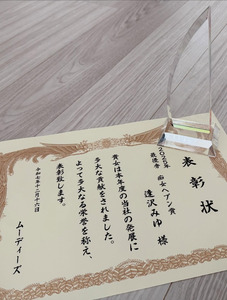 表彰状
2025年
最優秀
逢沢みゆ 様
貴女は本年度の当社の発展に
多大な貢献をされました。
よって多大なる栄誉を称え、
表彰致します。
令和七年十二月十六日
ムーディーズ